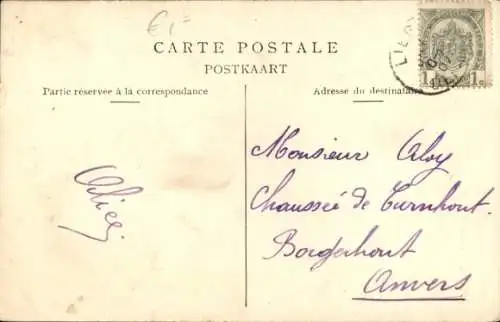 € 1=
CARTE POSTALE
POSTKAART
Partie réservée à la correspondance
Adresse du destinataire
1 1
Monsieur Aloy
Chaussée de Turnhout
Borgerhout
Anvers